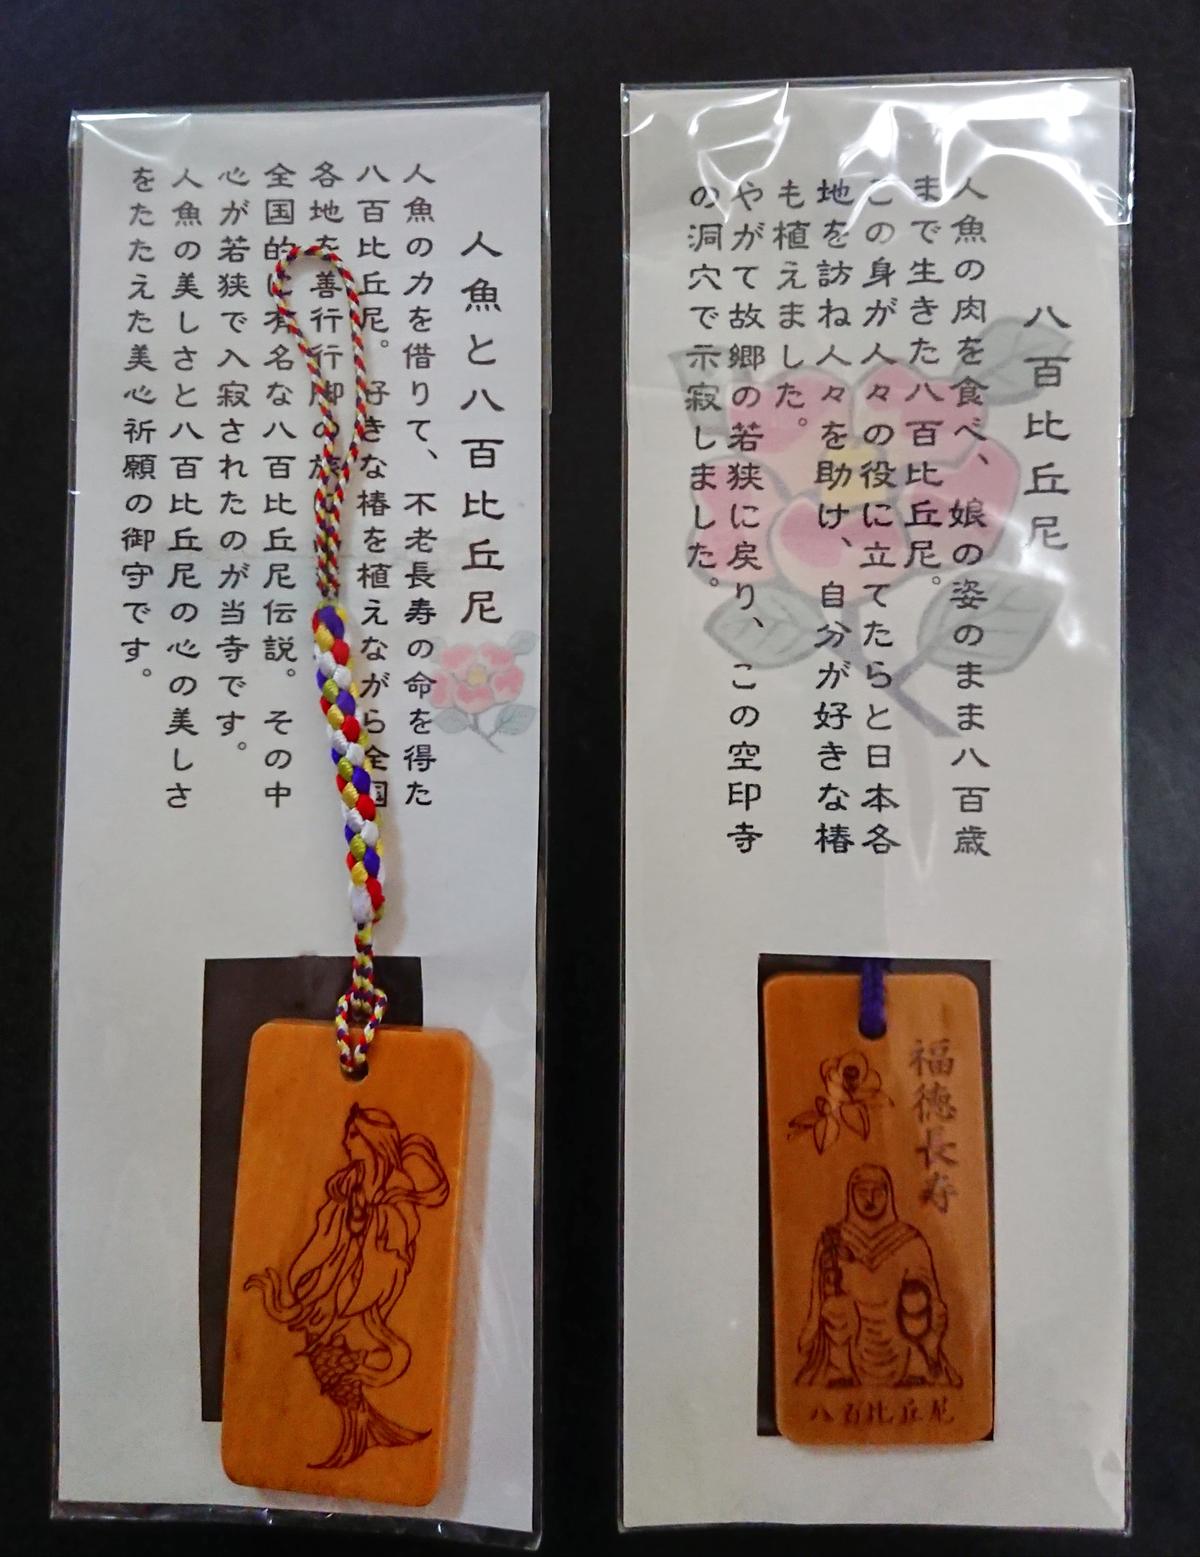 人魚と八百比丘尼
人魚の力を借りて、不老長寿の命を得た
八百比丘尼。　好きな椿を植えながら全国
各地を善行行脚の旅
全国的に有名な八百比丘尼伝説。　その中
心が若狭で入寂されたのが当寺です。
人魚の美しさと八百比丘尼の心の美しさ
をたたえた美心祈願の御守です。
八百比丘尼
人魚の肉を食べ、娘の姿のまま八百歳
まで生きた八百比丘尼。
この身が人々の役に立てたらと日本各
地を訪ね人々を助け、自分が好きな椿
も植えました。
やがて故郷の若狭に戻り、この空印寺
の洞穴で示寂しました。
福徳長寿
八百比丘尼